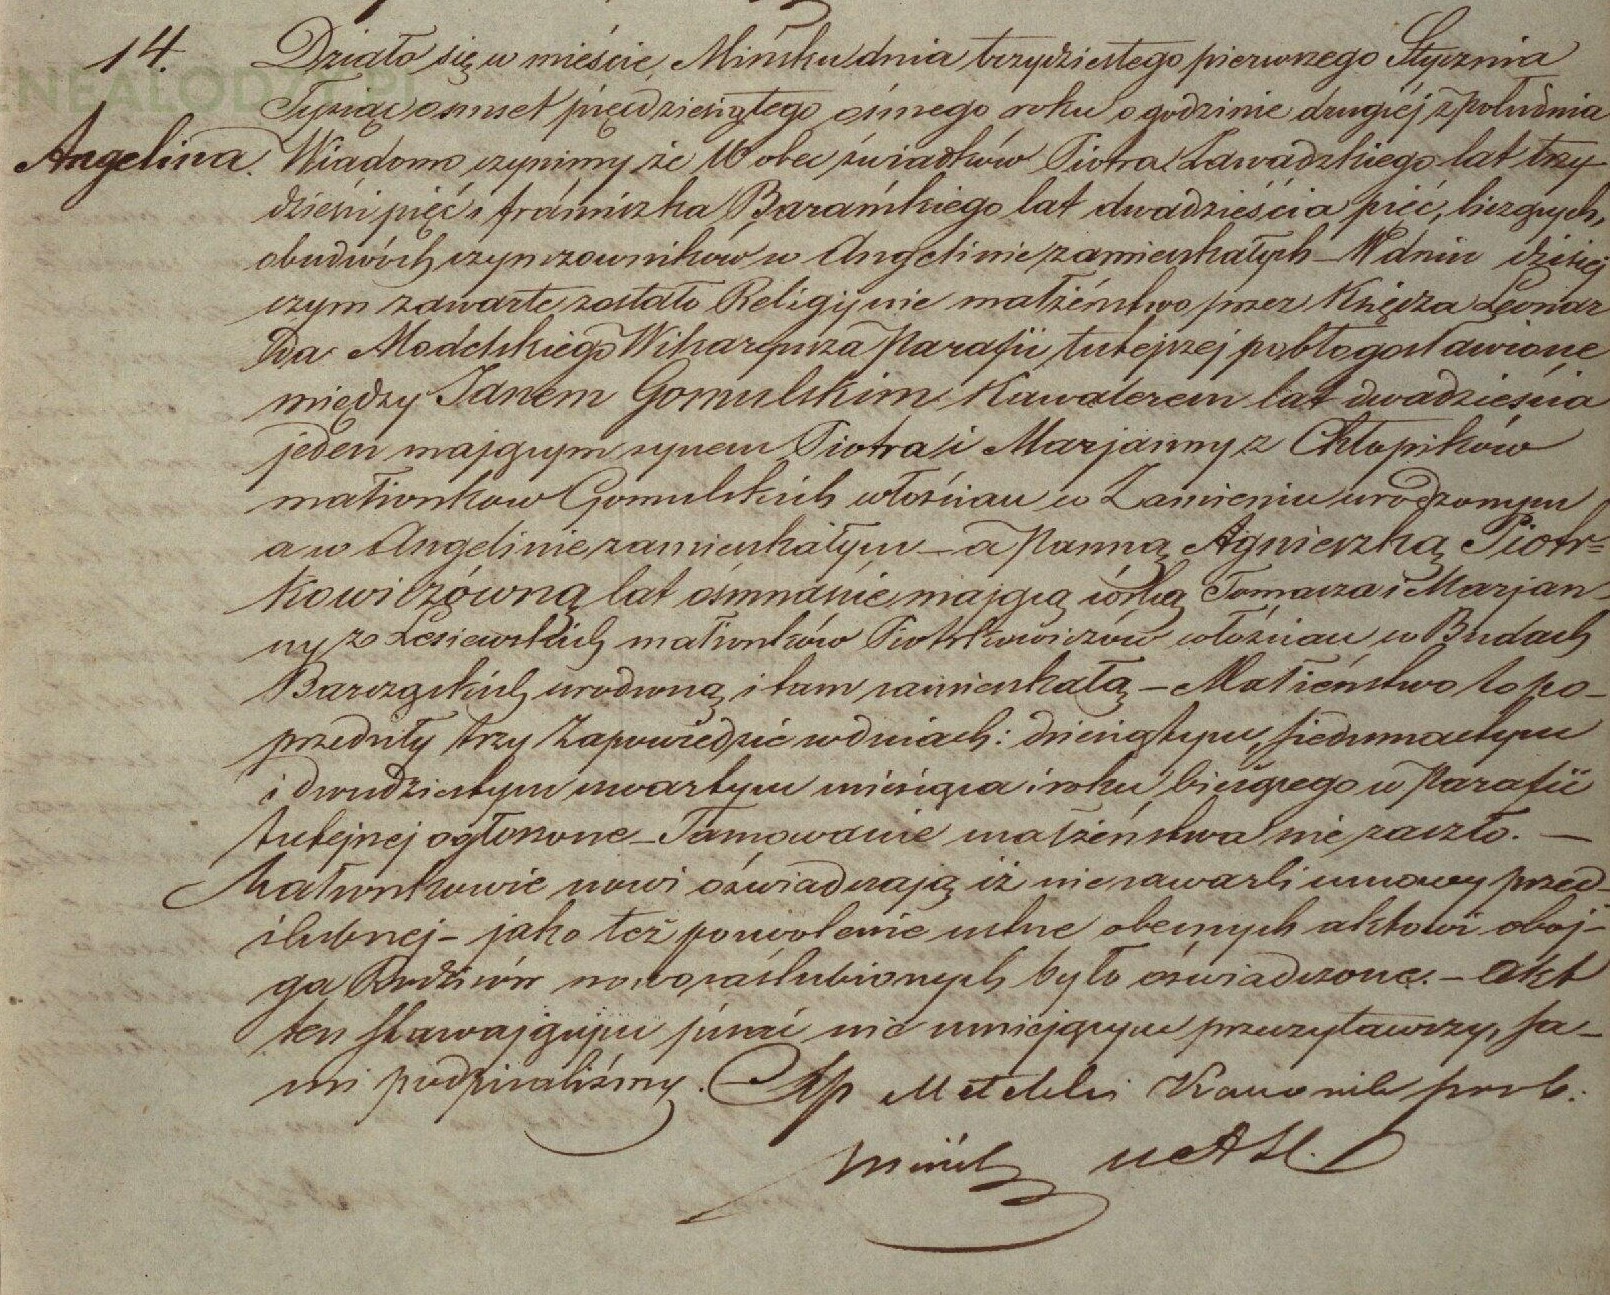 14.
Angelina.
Działo się w mieście Mińsku dnia trzydziestego pierwszego Stycznia
Tysiąc osmset pięcdziesiątego ósmego roku o godzinie drugiéj z południa
Wiadomo czynimy że W obec świadków Piotra Zawadzkiego lat trzy
dzieści pięć i fránciszka Barańskiego lat dwadzieścia pięć, liczących,
obudwóch czynszowników w Angelinie zamieszkałych – W dniu dzisiej
szym zawarte zostało Religijnie małżeństwo przez Księdza Leonar
da Modelskiego Wikaryusza Parafii tutejszej pobłogosławione
między Janem Gomulskim Kawalerem lat dwadzieścia
jeden mającym synem Piotra i Marjanny z Chłopików
małżonkow Gomulskich włościan w Zamieniu urodzonym
a w Angelinie zamieszkałym – a Panną Agnieszką Piotr=
kowiczówną lat ośmnaście mającą córką Tomasza i Marjan-
ny z Lesiewskich małżonków Piotrkowiczów włościan w Budach
Barczących urodzoną i tam zamieszkałą – Małżeństwo to po-
przedziły trzy Zapowiedzie w dniach: dziesiątym, siedmnastym
i dwudziestym czwartym miesiąca i roku bieżącego w Parafii
tutejszej ogłoszone – Tamowanie małżeństwa nie zaszło. —
Małżonkowie nowi oświadczają iż nie zawarli umowy przed-
ślubnej – jako też pozwolenie ustne obecnych aktowi oboj-
ga Rodziców nowozaślubionych było oświadczone. – Akt
ten stawającym pisać nie umiejącym przeczytawszy, sa-
mi podpisaliśmy.
Kanonik prob.